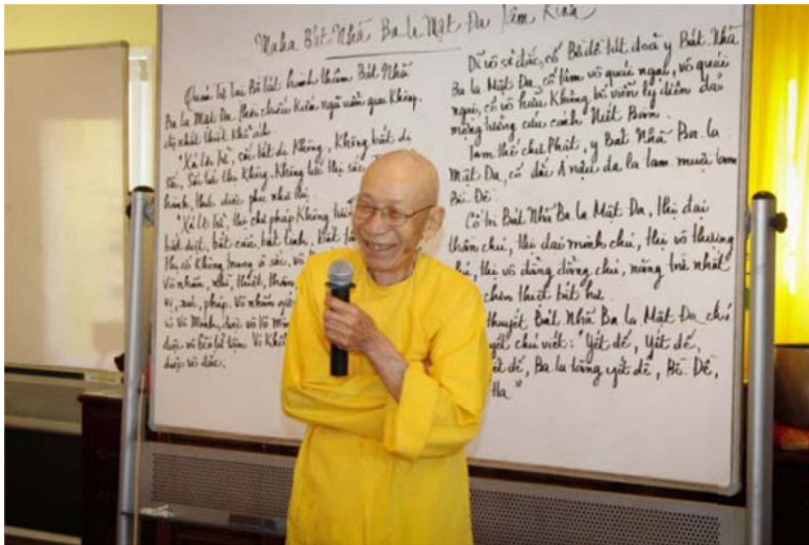 Maha Bát Nhã Ba la Mật Đa Tâm Kinh
Quán Tự Tại Bồ tát hành thâm Bát Nhã
Ba la Mật Đa thời chiếu kiến ngũ uẩn giai Không
độ nhất thiết khổ ách.
"Xá lợi tử, sắc bất dị Không, Không bất dị
sắc, sắc tức thị Không, Không tức thị sắc
hành, thức diệc phục như thị.
"Xá lợi tử, thị chư pháp Không tướng
bất diệt, bất cấu, bất tịnh, bất
thị cố Không trung vô sắc, vô
Vô nhãn, nhĩ, thiệt, thân
vị, xúc, pháp. Vô nhãn giới
vô Vô Minh, diệc vô Vô minh
diệc vô lão tử tận. Vô Khổ
diệc vô đắc.
Dĩ vô sở đắc, cố Bồ đề tát đoả y Bát Nhã
Ba la Mật Đa, cố tâm vô quái ngại, vô quái
ngại, cố vô hữu khủng bố viễn ly điên đảo
mộng tưởng cứu cánh Niết Bàn.
Tam thế chư Phật, y Bát Nhã Ba la
Mật Đa, cố đắc A nậu đa la tam miệu tam
Bồ Đề.
Cố tri Bát Nhã Ba la Mật Đa, thị đại
thần chú, thị đại minh chú, thị vô thượng
chú, thị vô đẳng đẳng chú, năng trừ nhất
chơn thiệt bất hư.
thuyết Bát Nhã Ba la Mật Đa chú
thuyết chú viết: "Yết đế, Yết đế,
yết đế, Ba la tăng yết đế, Bồ Đề,
ha"